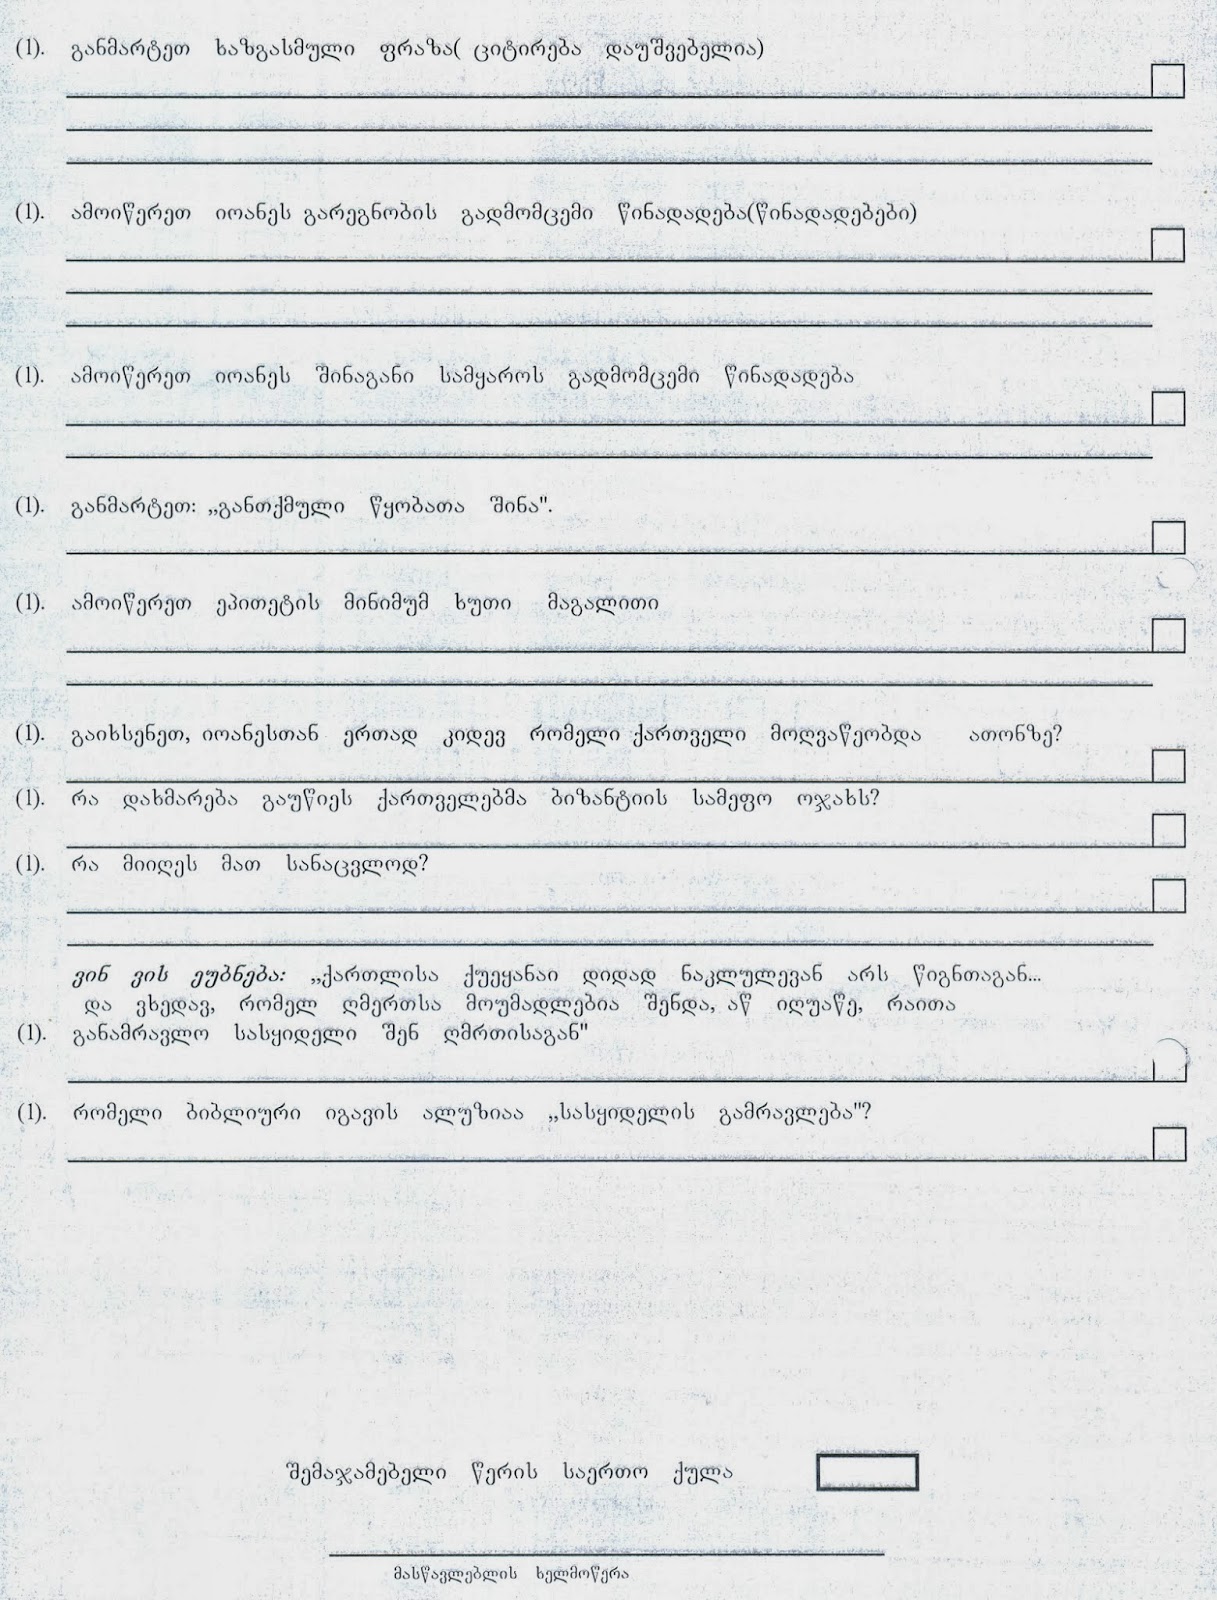 (1). განმარტეთ ხაზგასმული ფრაზა( ციტირება დაუშვებელია)
(1). ამოიწერეთ იოანეს გარეგნობის გადმომცემი წინადადება(წინადადებები)
(1). ამოიწერეთ იოანეს შინაგანი სამყაროს გადმომცემი წინადადება
(1). განმარტეთ: „განთქმული წყობათა შინა".
(1). ამოიწერეთ ეპითეტის მინიმუმ ხუთი მაგალითი
(1). გაიხსენეთ, იოანესთან ერთად კიდევ რომელი ქართველი მოღვაწეობდა ათონზე?
(1). რა დახმარება გაუწიეს ქართველებმა ბიზანტიის სამეფო ოჯახს?
(1). რა მიიღეს მათ სანაცვლოდ?
ვინ ვის ეუბნება: „ქართლისა ქუეყანაი დიდად ნაკლულევან არს წიგნთაგან...
და ვხედავ, რომელ ღმერთსა მოუმადლებია შენდა, აწ იღუაწე, რაითა
(1). განამრავლო სასყიდელი შენ ღმრთისაგან"
(1). რომელი ბიბლიური იგავის ალუზიაა „სასყიდელის გამრავლება"?
შემაჯამებელი წერის საერთო ქულა
მასწავლებლის ხელმოწერა